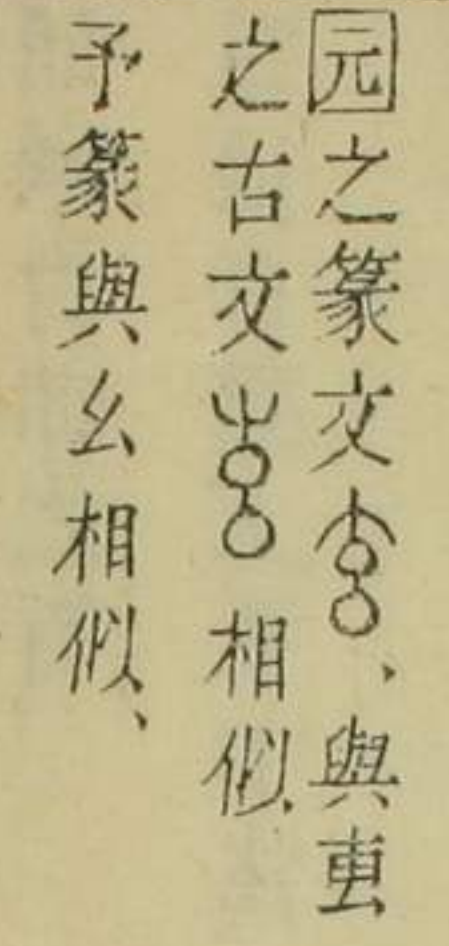 园之篆文、與叀
之古文相似、
予篆與幺相似、